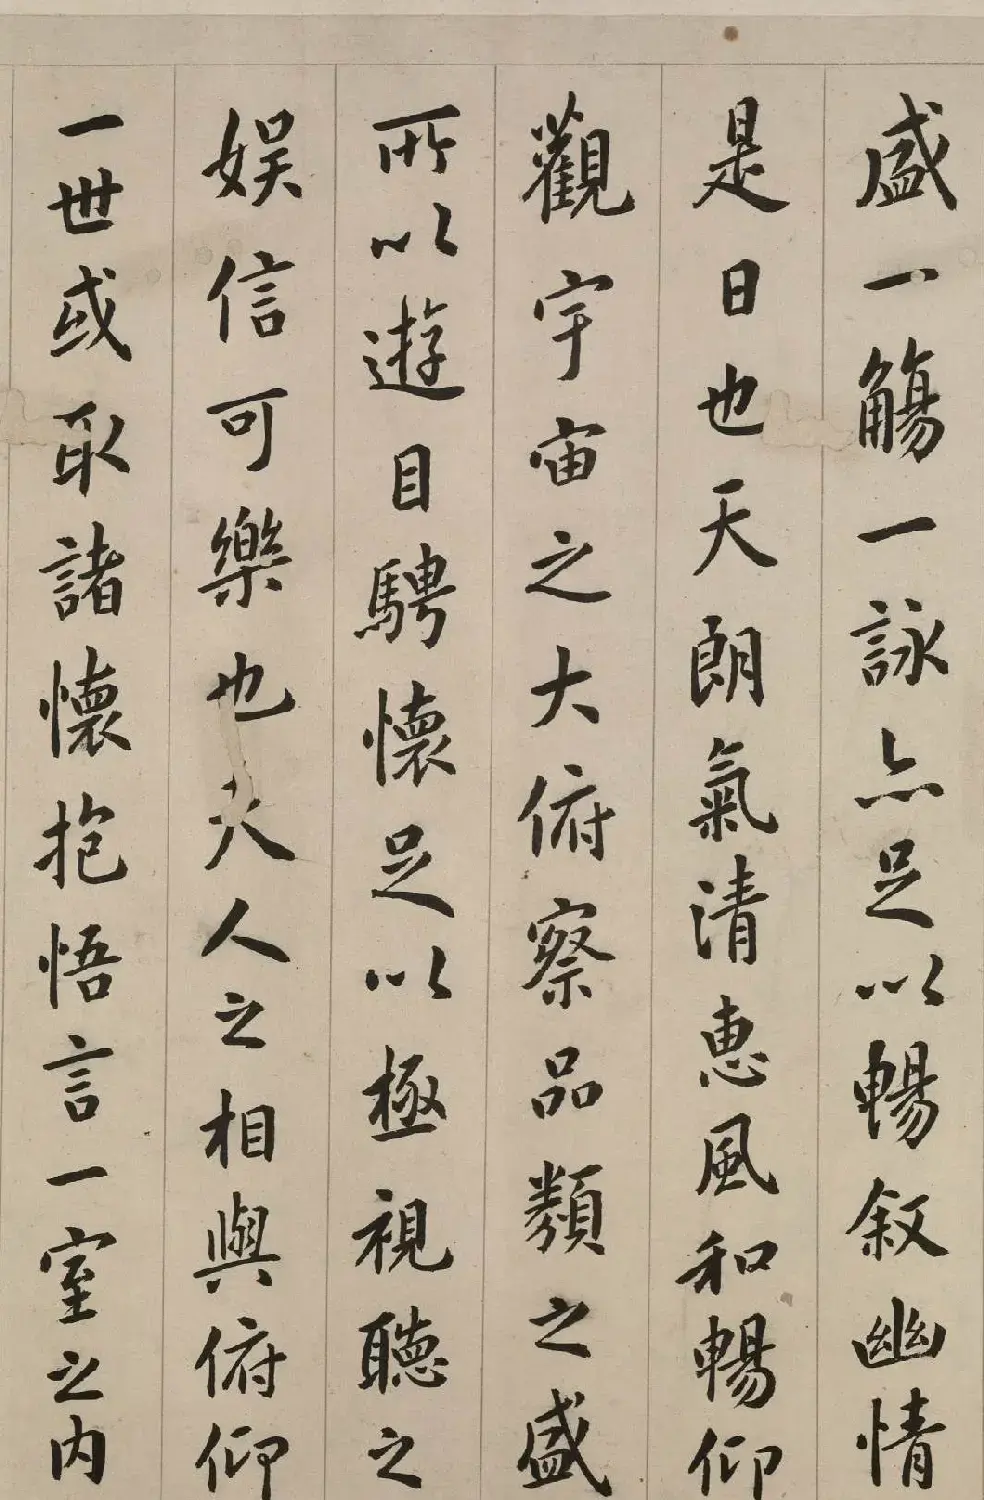 盛一觴一詠亦足以暢叙幽情
是日也天朗氣清惠風和暢仰
觀宇宙之大俯察品類之盛
所以遊目騁懷足以極視聽之
娱信可樂也夫人之相與俯仰
一世或取諸懷抱悟言一室之内